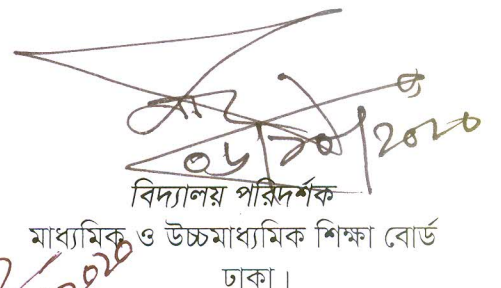 ০৮/১০/২০২০
বিদ্যালয় পরিদর্শক
মাধ্যমিক ও উচ্চমাধ্যমিক শিক্ষা বোর্ড
ঢাকা।